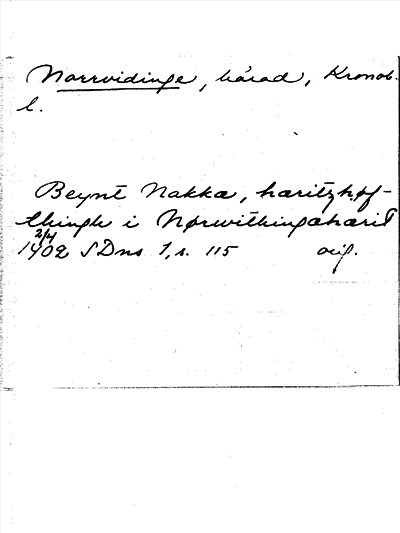 Norrvidinge, härad, Kronob.
l.
Beynt Nakka, haritzhøf-
thingh i Nørwithingaharit
2/4
1402 SDns 1, s. 115 orig.